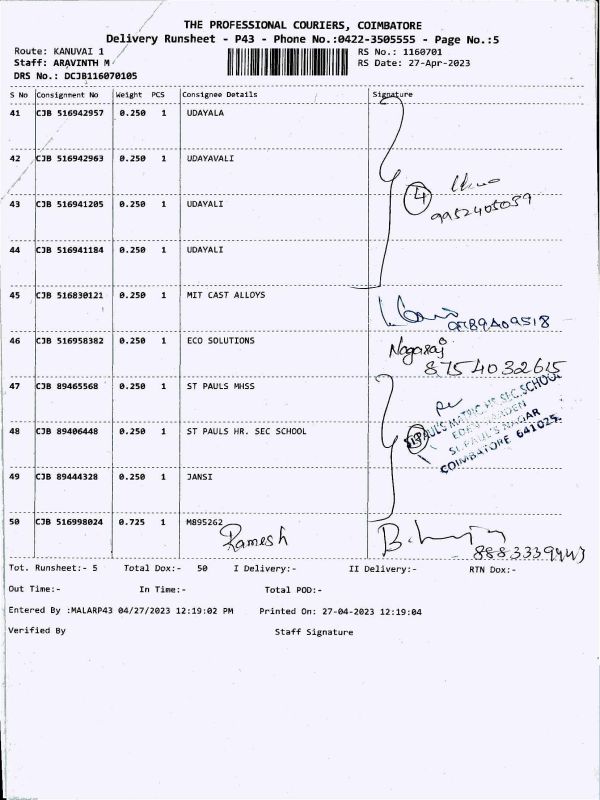 THE PROFESSIONAL COURIERS, COIMBATORE
Delivery Runsheet - P43 - Phone No.:0422-3505555 - Page No.:5
Route: KANUVAI 1 RS No.: 1160701
Staff: ARAVINTH M RS Date: 27-Apr-2023
DRS No.: DCJB116070105
S No Consignment No Weight PCS Consignee Details Signature
41 CJB 516942957 0.250 1 UDAYALA
42 CJB 516942963 0.250 1 UDAYAVALI
4
9952405059
43 CJB 516941205 0.250 1 UDAYALI
44 CJB 516941184 0.250 1 UDAYALI
45 CJB 516830121 0.250 1 MIT CAST ALLOYS
46 CJB 516958382 0.250 1 ECO SOLUTIONS Nagaraj
8754032615
47 CJB 89465568 0.250 1 ST PAULS MHSS
ST.PAUL'S MATRIC HR.SEC.SCHOOL
EDEN GARDEN
ST. PAUL'S NAGAR
COIMBATORE 641025.
48 CJB 89406448 0.250 1 ST PAULS HR. SEC SCHOOL
49 CJB 89444328 0.250 1 JANSI
50 CJB 516998024 0.725 1 M895262
Ramesh
Tot. Runsheet:- 5 Total Dox:- 50 I Delivery:- II Delivery:- RTN Dox:-
Out Time:- In Time:- Total POD:-
Entered By :MALARP43 04/27/2023 12:19:02 PM Printed On: 27-04-2023 12:19:04
Verified By Staff Signature